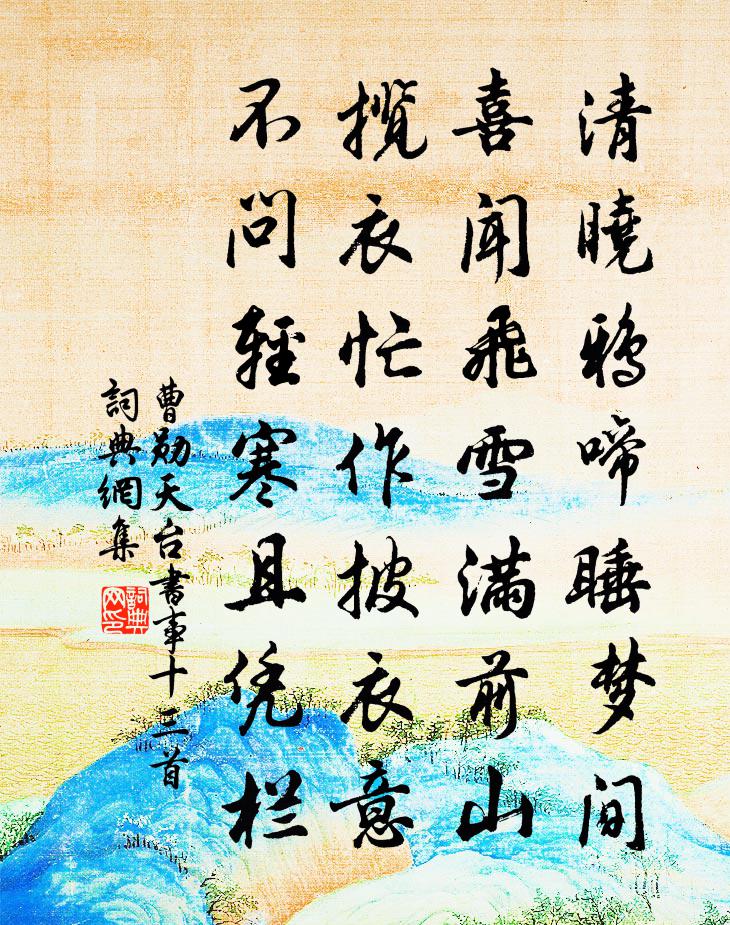 清曉鴉啼睡梦间
喜闻飛雪满前山
攬衣忙作披衣意
不问輕寒且凭栏
曹勛天台書事十三首
詞典網集
詞典网印